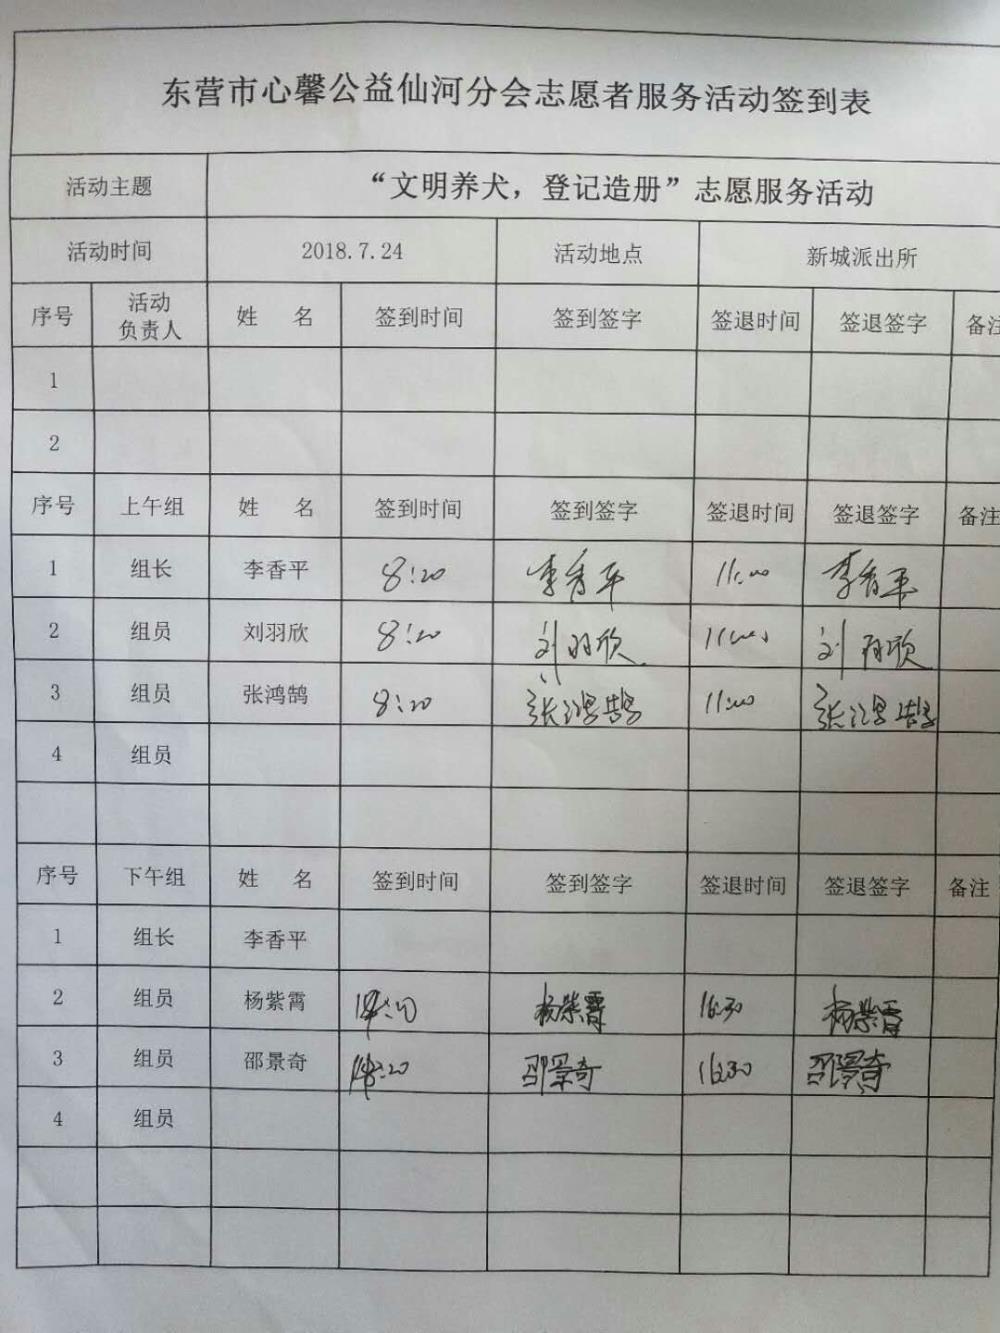 东营市心馨公益仙河分会志愿者服务活动签到表
活动主题 “文明养犬，登记造册”志愿服务活动
活动时间 2018.7.24 活动地点 新城派出所
序号 活动负责人 姓 名 签到时间 签到签字 签退时间 签退签字 备注
1
2
序号 上午组 姓 名 签到时间 签到签字 签退时间 签退签字 备注
1 组长 李香平 8:20 李香平 11:00 李香平
2 组员 刘羽欣 8:20 刘羽欣 11:00 刘羽欣
3 组员 张鸿鹄 8:20 张鸿鹄 11:00 张鸿鹄
4 组员
序号 下午组 姓 名 签到时间 签到签字 签退时间 签退签字 备注
1 组长 李香平
2 组员 杨紫霄 杨紫霄 16:30 杨紫霄
3 组员 邵景奇 邵景奇 16:30 邵景奇
4 组员